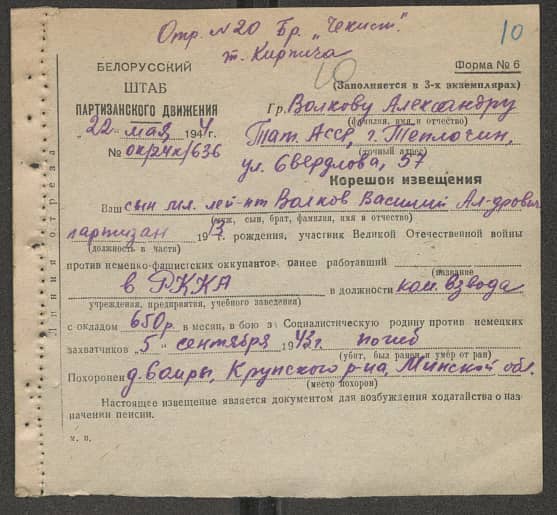 Отр. №20 Бр. „Чекист".
т. Кирпича
10
БЕЛОРУССКИЙ
ШТАБ
ПАРТИЗАНСКОГО ДВИЖЕНИЯ
„22" мая 1944 г.
№ ок/24к/636
Форма № 6
(Заполняется в 3-х экземплярах)
Гр. Волкову Александру
(фамилия, имя и отчество)
Тат. АССР,
(точный адрес)
ул. Свердлова, 57
Корешок извещения
Ваш сын мл. лей-нт Волков Василий Ал-дрович
(муж, сын, брат, фамилия, имя и отчество)
партизан 1913 г. рождения, участник Великой Отечественной войны
(должность в части)
против немецко-фашистских оккупантов ранее работавший
(название
в РККА в должности ком. взвода
учреждения, предприятия, учебного заведения)
с окладом 650 р. в месяц, в бою за Социалистическую родину против немецких
захватчиков „5" сентября 1943 г. погиб
(убит, был ранен и умер от ран)
Похоронен Крупского р-на, Минской обл.
(место похорон)
Настоящее извещение является документом для возбуждения ходатайства о на-
значении пенсии.
м. п.
Линия отреза